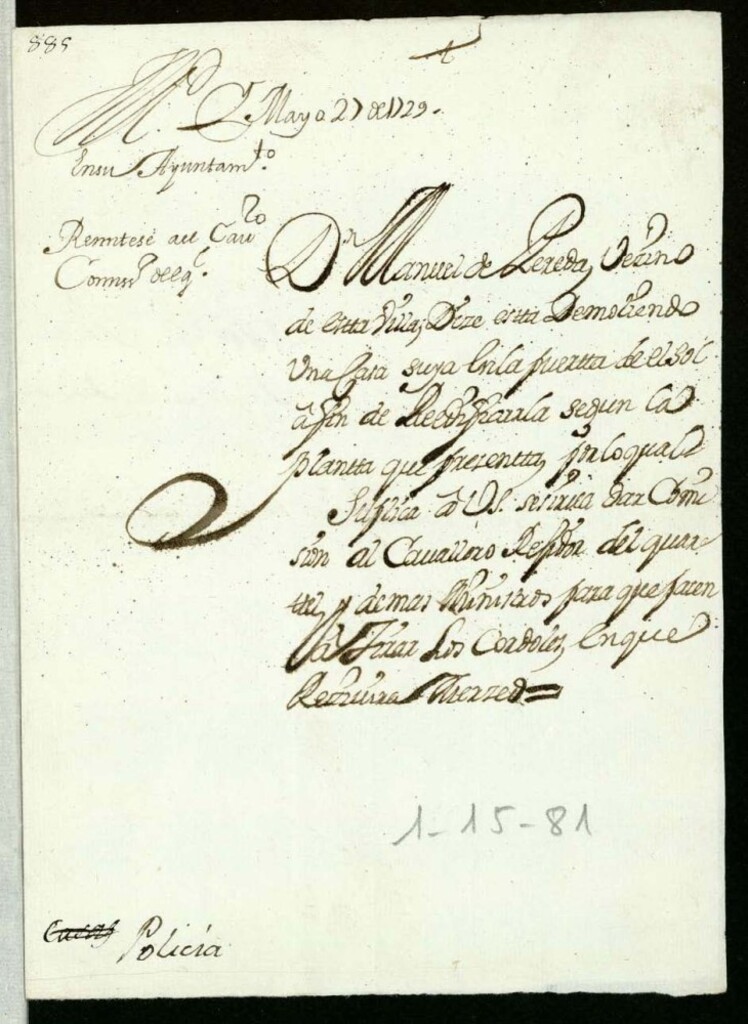 885
M.d Y Mayo 27 de 1729.
En su Ayuntam.to
Remitese al Cavro
Comis.o de el q.l
D.n Manuel de Pereda, Vezino
de estta Villa, Dize estta Demoliendo
Una Casa suya en la puertta de el Sol
a fin de Reedificarla segun la
plantta que presentta, por lo qual
Suplica a V.S. se sirva dar Comi
sion al Cavallero Rexidor del quar-
ttel, y demas Ministros para que pasen
a Tirar los Cordeles, en que
Rezivira Merzed=
1-15-81
Casas Policía